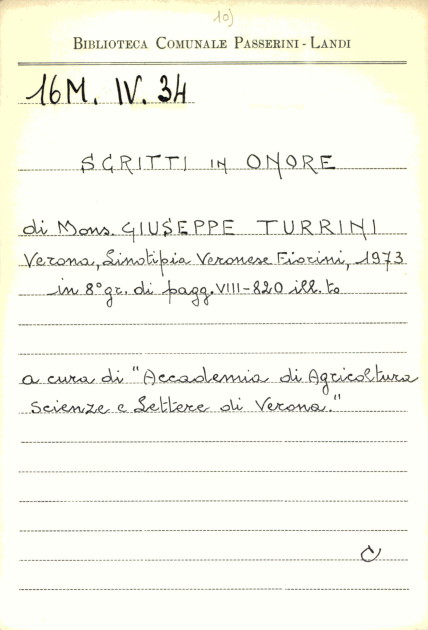 10)
BIBLIOTECA COMUNALE PASSERINI - LANDI
16M. IV. 34
SCRITTI IN ONORE
di Mons. GIUSEPPE TURRINI
Verona, Linotipia Veronese Fiorini, 1973
in 8° gr. di pagg. VIII-820 ill. to
a cura di "Accademia di Agricoltura
Scienze e Lettere di Verona."
C